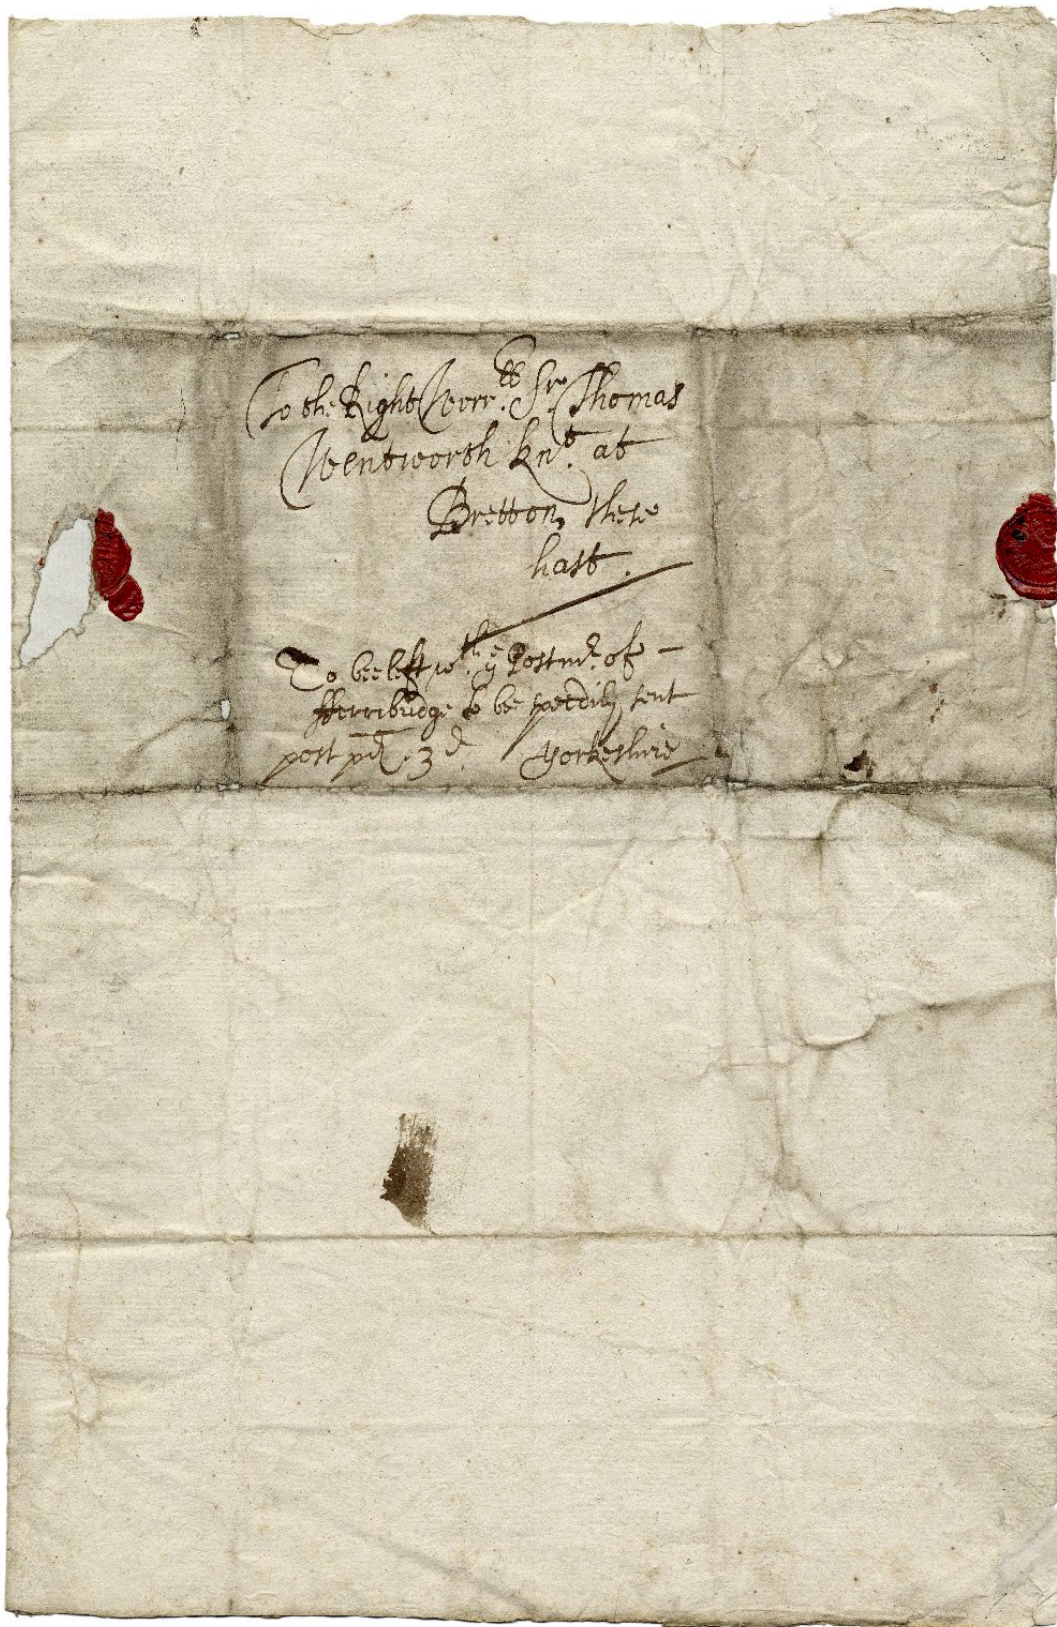 To the Right Worr:ll Sr. Thomas
Wentworth Knt: at
Bretton, these
hast.
To bee left wth: ye Postmr: of –
fferribridge to be speedily sent
post pd. 3d. Yorkeshire